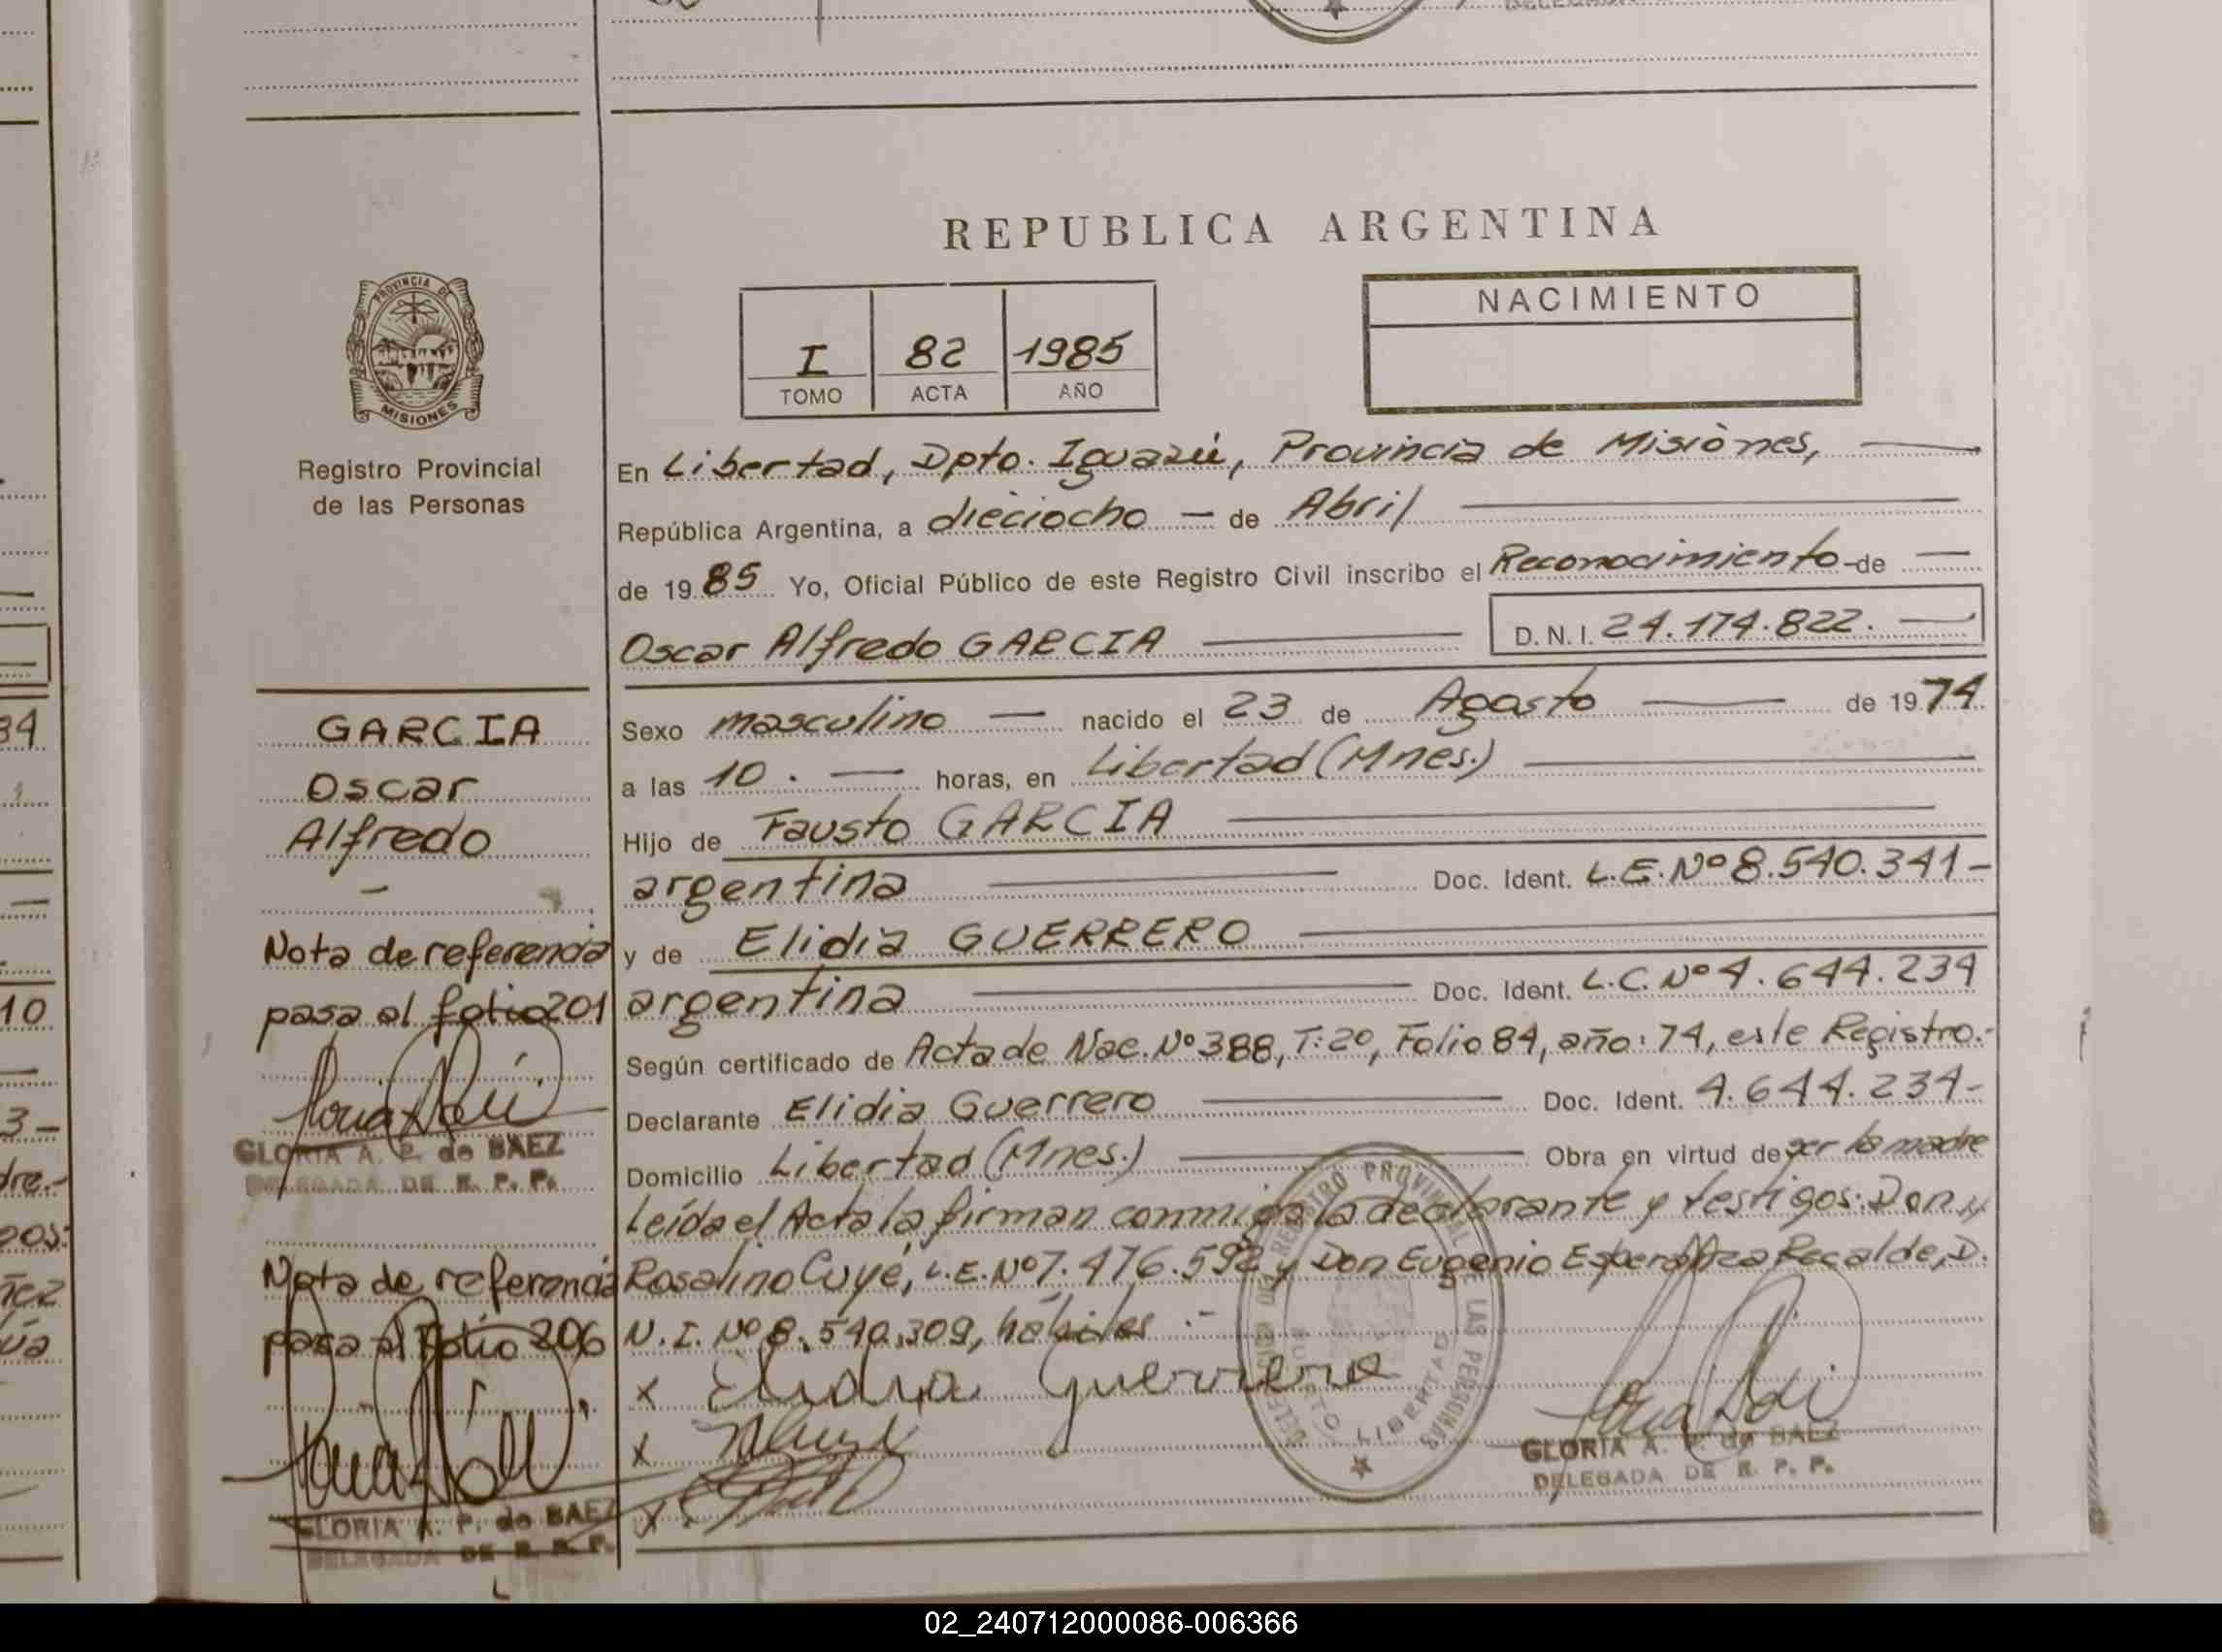 REPUBLICA ARGENTINA
PROVINCIA DE
MISIONES
Registro Provincial
de las Personas
I 82 1985
TOMO ACTA AÑO
NACIMIENTO
En Libertad, Dpto. Iguazú, Provincia de Misiones,
República Argentina, a dieciocho — de Abril
de 1985 Yo, Oficial Público de este Registro Civil inscribo el Reconocimiento de
Oscar Alfredo GARCIA D.N.I. 24.174.822.
GARCIA
Oscar
Alfredo
Sexo masculino — nacido el 23 de Agosto — de 1974
a las 10. — horas, en Libertad (Mnes.)
Hijo de Fausto GARCIA
argentina Doc. Ident. L.E. Nº 8.540.341-
y de Elidia GUERRERO
argentina Doc. Ident. L.C. Nº 4.644.234
Según certificado de Acta de Nac. Nº 388, T: 2º, Folio 84, año: 74, este Registro.-
Declarante Elidia Guerrero Doc. Ident. 4.644.234-
Domicilio Libertad (Mnes.) Obra en virtud de ser la madre
Leída el Acta la firman conmigo la declarante y testigos: Don
Rosalino Cuyé, L.E. Nº 7.476.592 y Don Eugenio Esperanza Recalde, D.
N.I. Nº 8.540.309, hábiles .-
x Elidia Guerrero
x
x
GLORIA A. P. de BAEZ
DELEGADA DE R. P. P.
Nota de referencia
pasa al folio 201
GLORIA A. P. de BAEZ
DELEGADA DE R. P. P.
Nota de referencia
pasa al Folio 206
GLORIA A. P. de BAEZ
DELEGADA DE R. P. P.
REGISTRO PROVINCIAL DE LAS PERSONAS
PUERTO LIBERTAD
02_240712000086-006366